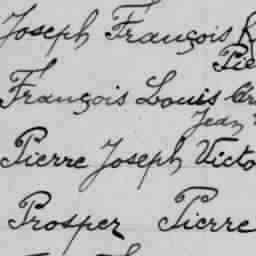 Joseph François
Pie
François Louis
Jean
Pierre Joseph Victo
Prosper Pierre